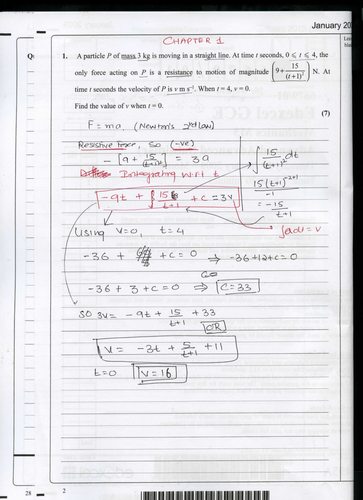 January 20
CHAPTER 1
1. A particle P of mass 3 kg is moving in a straight line. At time t seconds, 0 ⩽ t ⩽ 4, the
only force acting on P is a resistance to motion of magnitude (9 + 15/(t+1)²) N. At
time t seconds the velocity of P is v m s⁻¹. When t = 4, v = 0.
Find the value of v when t = 0.
(7)
F = ma (Newton's 2nd law)
Resistive force, so (-ve)
- [9 + 15/(t+1)²] = 3a
Integrating w.r.t t
-9t + 15/(t+1) + c = 3v
∫ 15/(t+1)² dt
15(t+1)^(-2+1)/-1
= -15/(t+1)
∫a dt = v
Using v=0, t=4
-36 + + c = 0 ⇒ -36+12+c=0
-36 + 3 + c = 0 ⇒ C=33
so 3v = -9t + 15/(t+1) + 33
OR
v = -3t + 5/(t+1) + 11
t=0 v=16
28
2